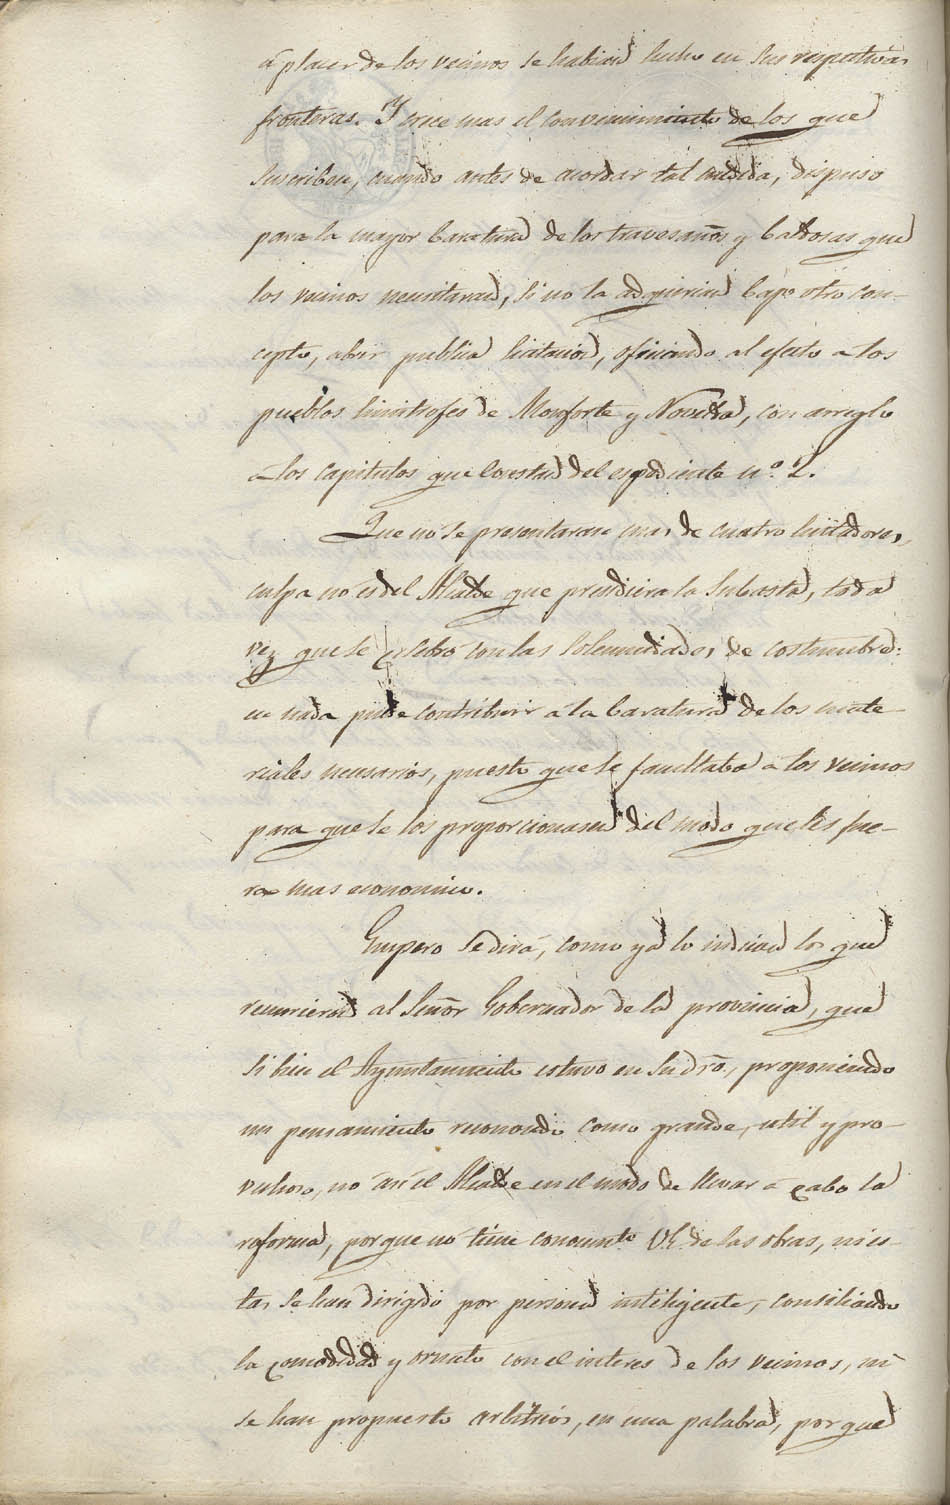 á placer de los vecinos se habian hecho en sus respectivas
fronteras. Y crece mas el convencimiento de los que
suscriben, cuando antes de acordar tal medida, dispuso
para la mayor baratura de los travesaños y baldosas que
los vecinos necesitaran, si no la adquirian bajo otro con-
cepto, abrir publica licitacion, oficiando al efecto a los
pueblos limitrofes de Monforte y Novelda, con arreglo
a los capitulos que constan del espediente nº. 2.
Que no se presentaran mas de cuatro licitadores,
culpa no es del Alcalde que presidiera la subasta, toda
vez que se celebró con las solemnidades de costumbre:
en nada pudo contribuir á la baratura de los mate-
riales necesarios, puesto que se facultaba á los vecinos
para que se los proporcionasen del modo que les fue-
ra mas economico.
Empero se dirá, como ya lo indican los que
recurrieron al Señor Gobernador de la provincia, que
si bien el Ayuntamiento estuvo en su dro., proponiendo
un pensamiento reconocido como grande, util y pro-
vechoso, no así el Alcalde en el modo de llevar á cabo la
reforma, porque no tiene conocimto. VE. de las obras, ni es-
tas se han dirigido por persona inteligente, consiliando
la comodidad y ornato con el interes de los vecinos, ni
se han propuesto arbitrios, en una palabra, porque